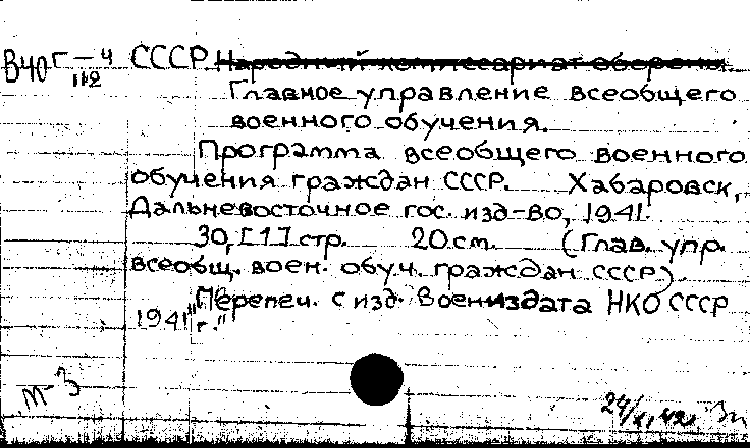 В40г-4 СССР Народный комиссариат обороны.
112
Главное управление всеобщего
военного обучения.
Программа всеобщего военного
обучения граждан СССР. Хабаровск,
Дальневосточное гос. изд-во, 1941.
30, [1] стр. 20 см. (Глав. упр.
всеобщ. воен. обуч. граждан СССР)
"Перепеч. с изд. Воениздата НКО СССР
1941 г."
М-3
24/